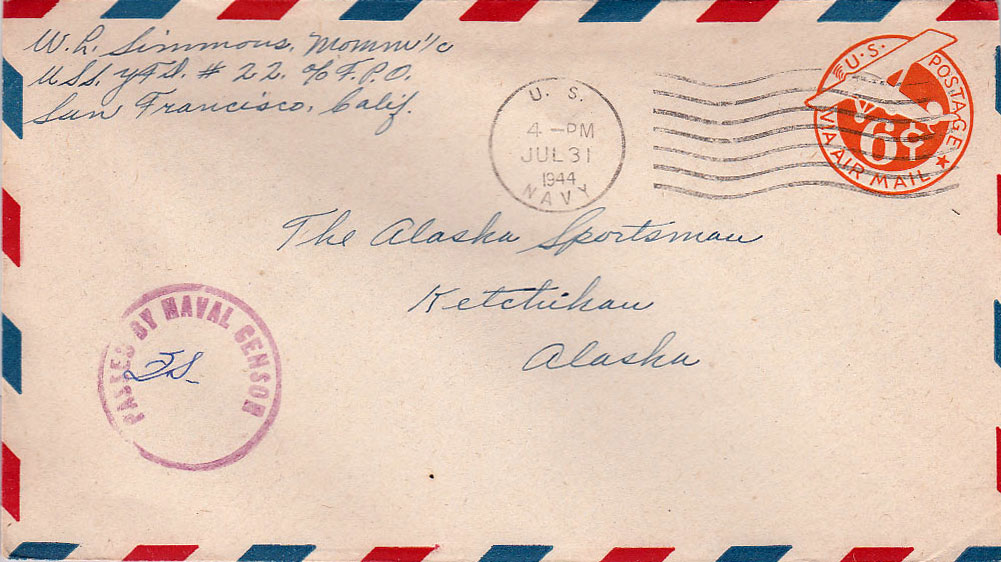 W. L. Simmons, Momm 1/c
U.S.S. YFD. # 22. c/o F.P.O.
San Francisco, Calif.
U. S.
4 - PM
JUL 31
1944
NAVY
U.S. POSTAGE
6¢
VIA AIR MAIL
The Alaska Sportsman
Ketchikan
Alaska
PASSED BY NAVAL CENSOR